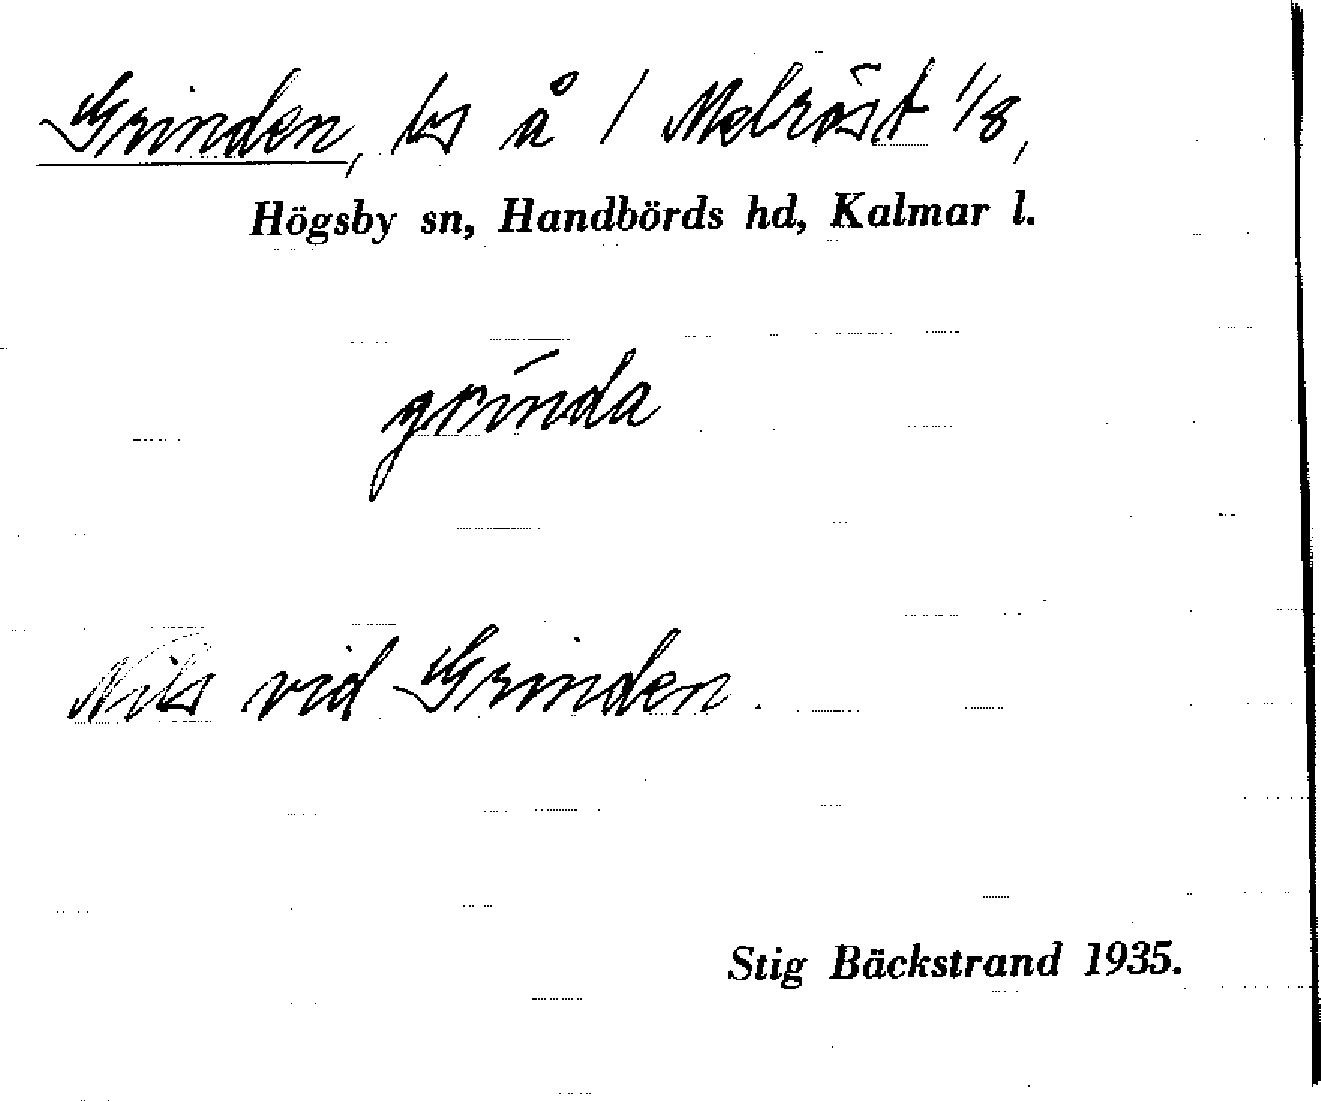 Grinden, ls å 1 Melröst 1/8,
Högsby sn, Handbörds hd, Kalmar l.
grinda
Nils vid Grinden.
Stig Bäckstrand 1935.